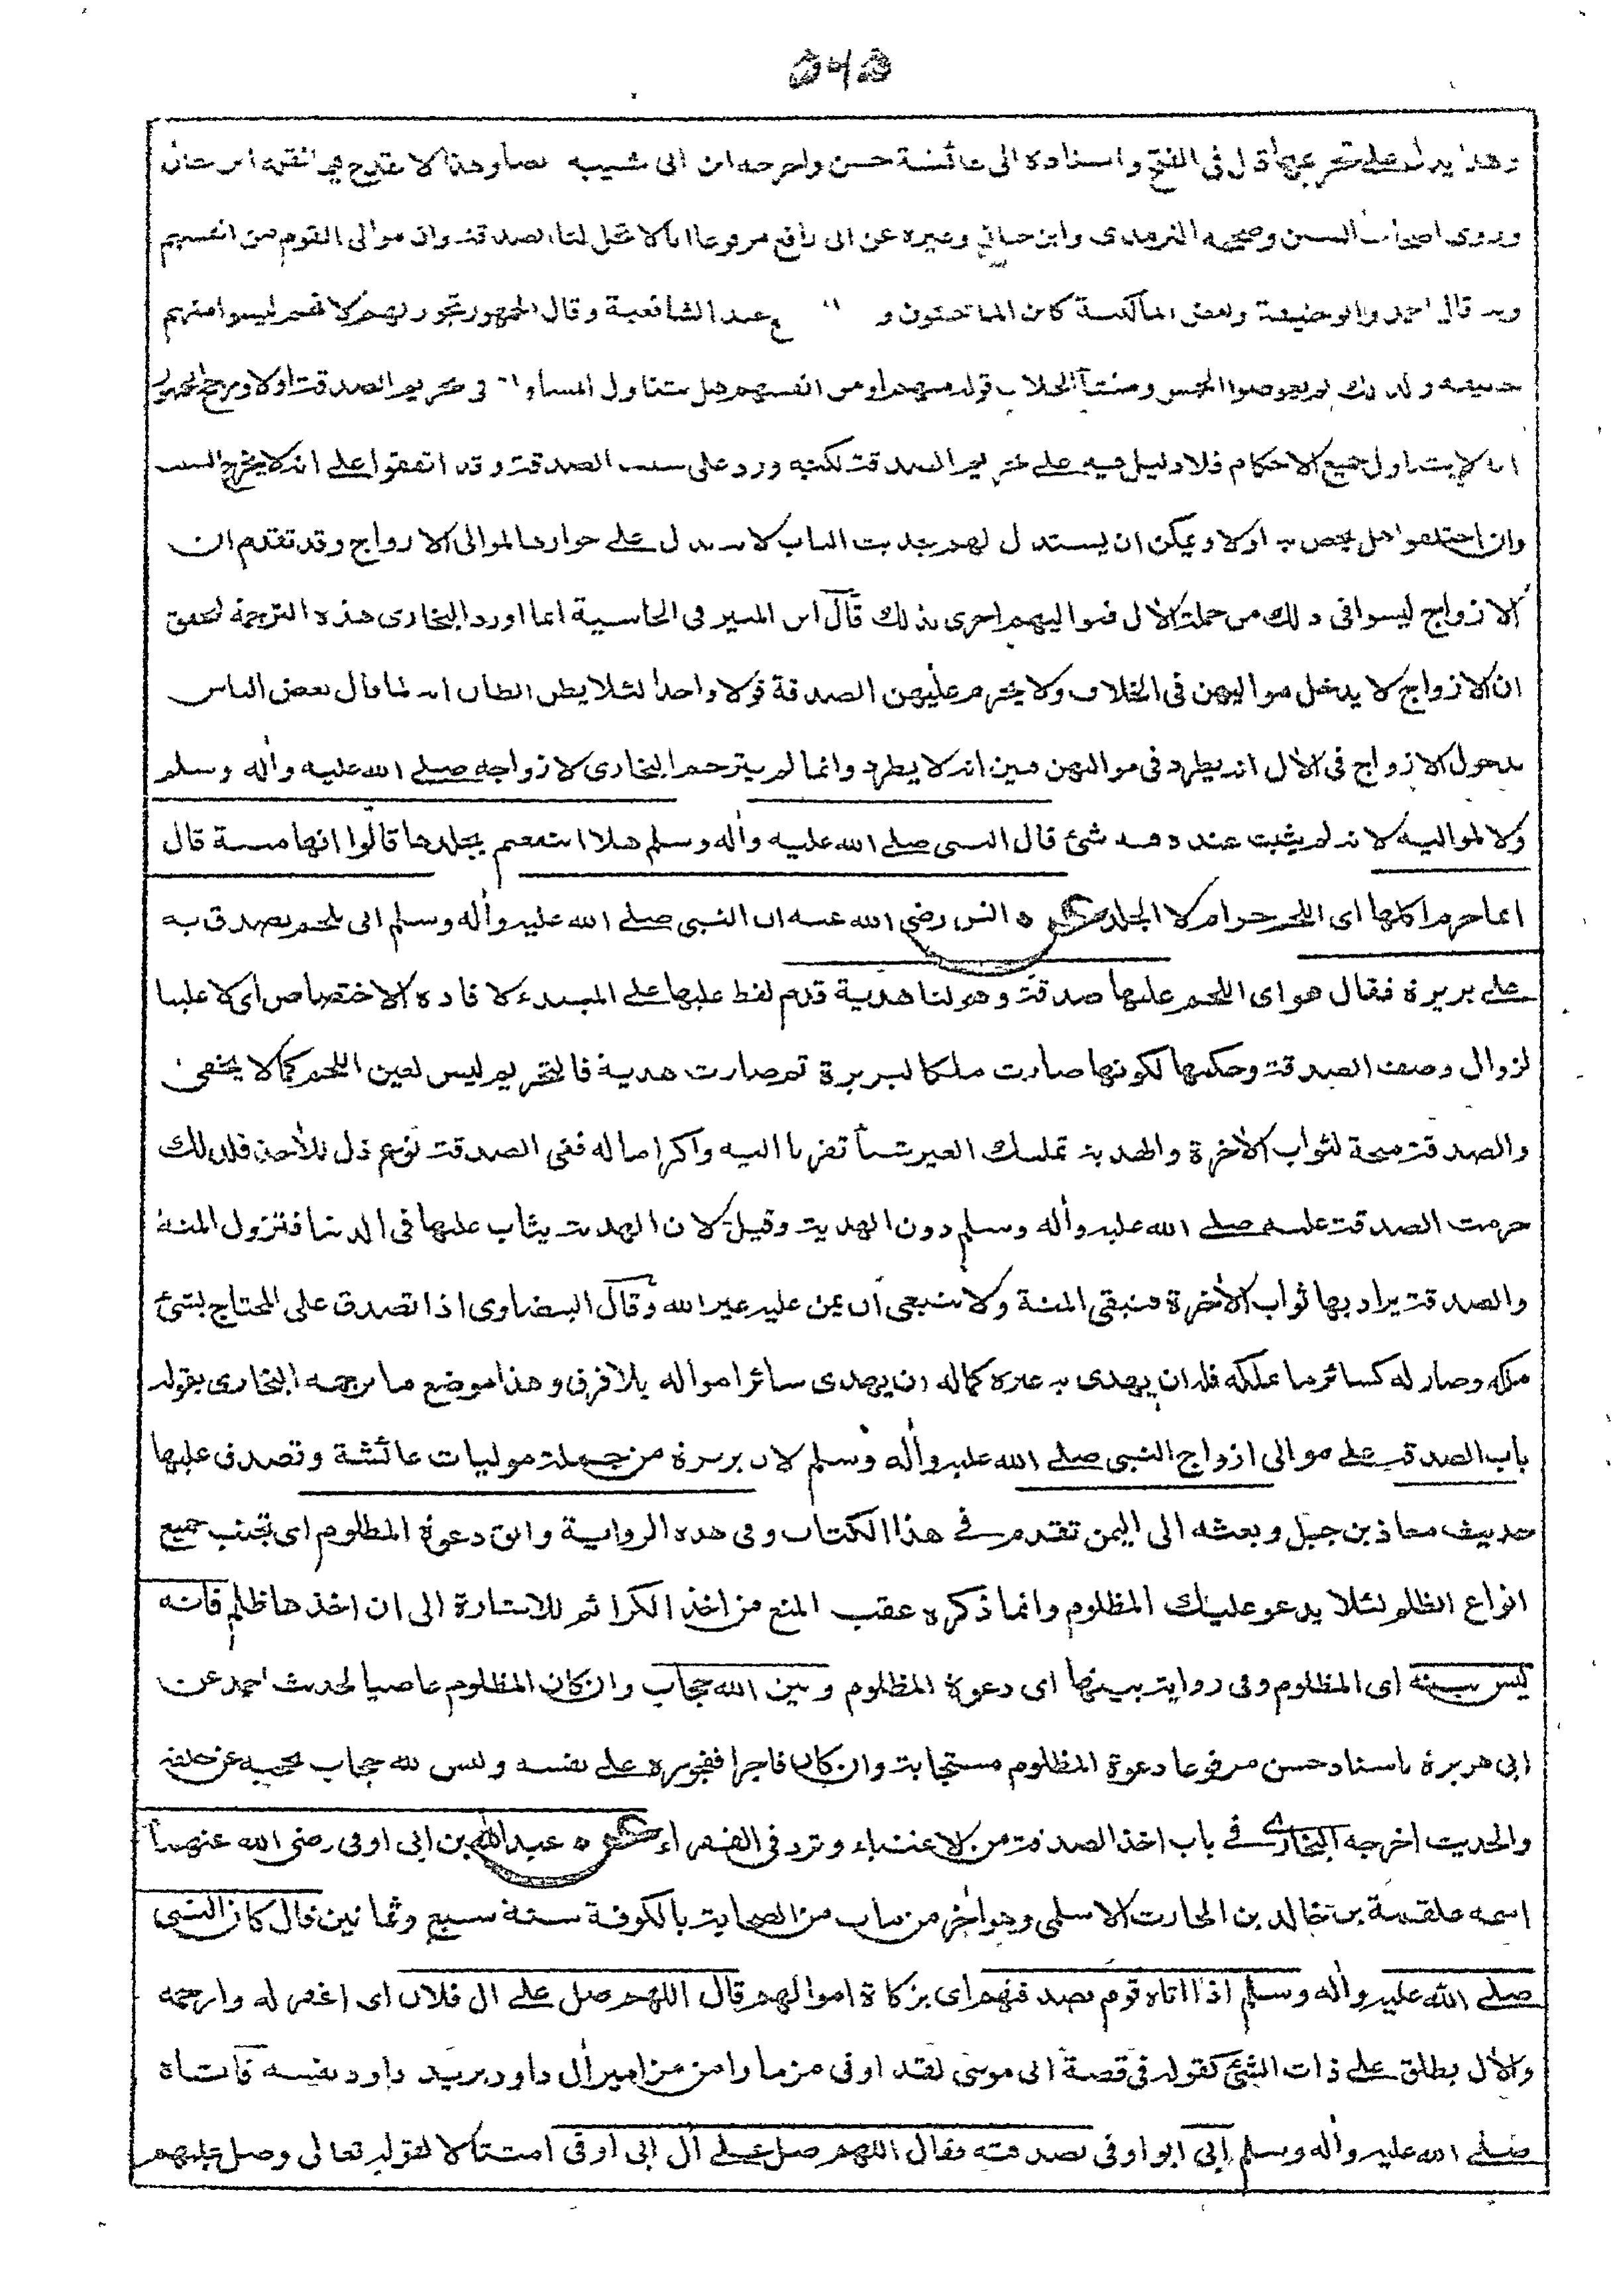 ٥٤٥
وهذا يدل على تحريمها قال فى الفتح واسناده الى عائشة حسن واخرجه ابن ابى شيبة وهذا لا يقدح
وروى اصحاب السنن وصححه الترمذى وابن حبان وغيره عن ابى رافع مرفوعا انا لا تحل لنا الصدقة وان موالى القوم من انفسهم
وبه قال احمد وابو حنيفة وبعض المالكية كابن الماجشون و عند الشافعية وقال الجمهور تجوز لهم لانهم ليسوا منهم
حقيقة ولذلك لم يعوضوا الخمس ومنشأ الخلاف قوله منهم او من انفسهم هل يتناول المساواة فى تحريم الصدقة اولا وحجة الجمهور
انه لا يتناول جميع الاحكام فلا دليل فيه على تحريم الصدقة لكنه ورد على سبب الصدقة وقد اتفقوا على انه لا يخرج السبب
وان اختلفوا هل يخص به اولا ويمكن ان يستدل لهم بحديث الباب لانه يدل على جوازها لموالى الازواج وقد تقدم ان
الازواج ليسوا فى ذلك من جملة الأل فمواليهم احرى بذلك قال ابن المنير فى الحاشية انما اورد البخارى هذه الترجمة لتحقق
ان الازواج لا يدخل مواليهن فى الخلاف ولا يحرم عليهن الصدقة قولا واحدا لئلا يظن الظان انه لما قال بعض الناس
بدخول الازواج فى الأل انه يطرد فى مواليهن فبين انه لا يطرد وانما لم يترجم البخارى لازواجه صلے الله عليه وأله وسلم
ولا لمواليه لانه لم يثبت عنده فيه شئ قال النبى صلے الله عليه وأله وسلم هلا انتفعتم بجلدها قالوا انها ميتة قال
انما حرم اكلها اى اللحم حرام لا الجلد ه انس رضى الله عنه ان النبى صلے الله عليه وأله وسلم اتى بلحم تصدق به
على بريرة فقال هو اى اللحم عليها صدقة وهو لنا هدية قدم لفظ عليها على المبتدء لافادة الاختصاص اى لا علينا
لزوال وصف الصدقة وحكمها لكونها صارت ملكا لبريرة ثم صارت هدية فالتحريم ليس لعين اللحم كما لا يخفى
والصدقة منحة لثواب الأخرة والهدية تمليك الغير شيأ تقربا اليه واكراما له ففى الصدقة نوع ذل للأخذ فلذلك
حرمت الصدقة عليه صلے الله عليه وأله وسلم دون الهدية وقيل لان الهدية يثاب عليها فى الدنيا فتزول المنة
والصدقة يراد بها ثواب الأخرة فتبقى المنة ولا ينبغى ان يمن عليه غير الله وقال البيضاوى اذا تصدق على المحتاج بشئ
ملكه وصار له كسائر ما يملكه فله ان يهدى به غيره كما له ان يهدى سائر امواله بلا فرق وهذا موضع ما ترجمه البخارى بقوله
باب الصدقة على موالى ازواج النبى صلے الله عليه وأله وسلم لان بريرة من جملة موليات عائشة وتصدق عليها
حديث معاذ بن جبل وبعثه الى اليمن تقدم فى هذا الكتاب وفى هذه الرواية واتق دعوة المظلوم اى تجنب جميع
انواع الظلم لئلا يدعو عليك المظلوم وانما ذكره عقب المنع من اخذ الكرائم للاشارة الى ان اخذها ظلم فانه
ليس بينه اى المظلوم وفى رواية بينها اى دعوة المظلوم وبين الله حجاب وان كان المظلوم عاصيا لحديث احمد عن
ابى هريرة باسناد حسن مرفوعا دعوة المظلوم مستجابة وان كان فاجرا ففجوره على نفسه وليس لله حجاب يحجبه عن خلقه
والحديث اخرجه البخارى فى باب اخذ الصدقة من الاغنياء وترد فى الفقراء ه عبدالله بن ابى اوفى رضى الله عنهما
اسمه علقمة بن خالد بن الحارث الاسلمى وهو أخر من مات من الصحابة بالكوفة سنة سبع وثمانين قال كان النبى
صلے الله عليه وأله وسلم اذا اتاه قوم بصدقتهم اى بزكاة اموالهم قال اللهم صل على ال فلان اى اغفر له وارحمه
والأل يطلق على ذات الشئ كقوله فى قصة ابى موسى لقد اوتى مزمارا من مزامير أل داود يريد داود نفسه فأتاه
صلے الله عليه وأله وسلم ابى ابو اوفى بصدقته فقال اللهم صل على أل ابى اوفى امتثالا لقوله تعالى وصل عليهم